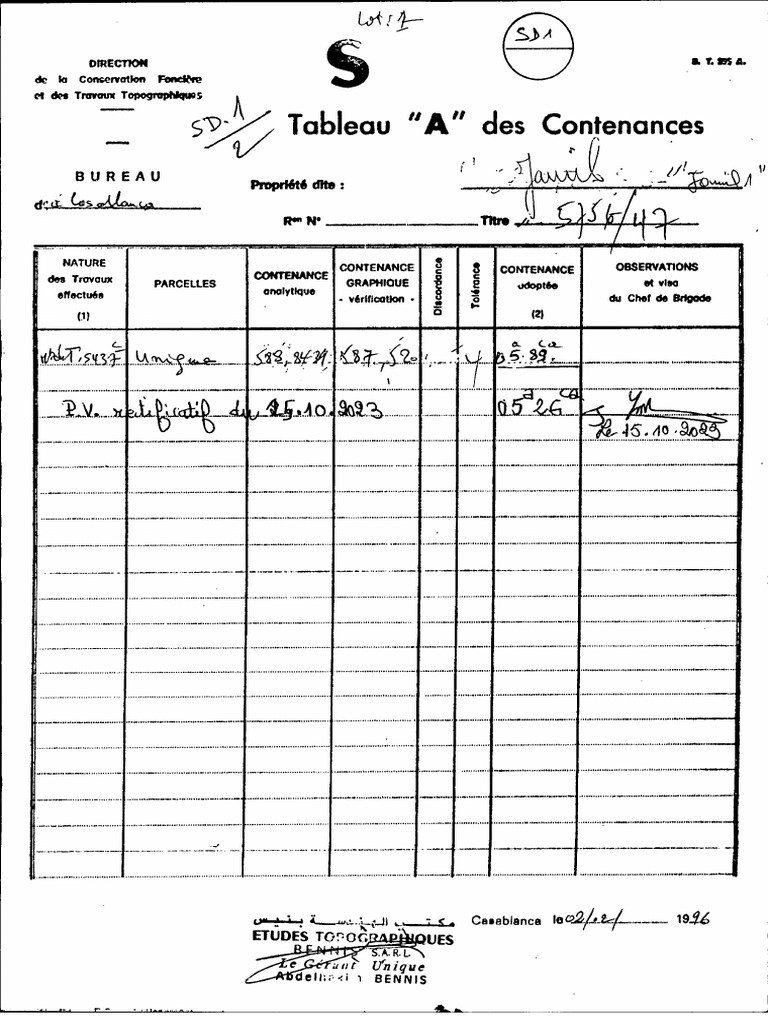 Lot: 1
SD1
S
B. T. 275 A.
DIRECTION
de la Conservation Foncière
et des Travaux Topographiques
SD-1/2
Tableau "A" des Contenances
BUREAU
de Casablanca
Propriété dite : "Jamil" "Jamil 1"
Ron N° Titre 5756/47
NATURE des Travaux effectués (1)
PARCELLES
CONTENANCE analytique
CONTENANCE GRAPHIQUE - vérification -
Discordance
Tolérance
CONTENANCE adoptée (2)
OBSERVATIONS et visa du Chef de Brigade
T.5437 Unique 588,8439 587,520 4 05a 89ca
P.V. rectificatif du 25.10.2023 05a 26ca
Le 15.10.2023
مكتب الهندسة بنيس
Casablanca le 02/02/ 1996
ETUDES TOPOGRAPHIQUES
BENNIS S.A.R.L
Le Gérant Unique
BENNIS